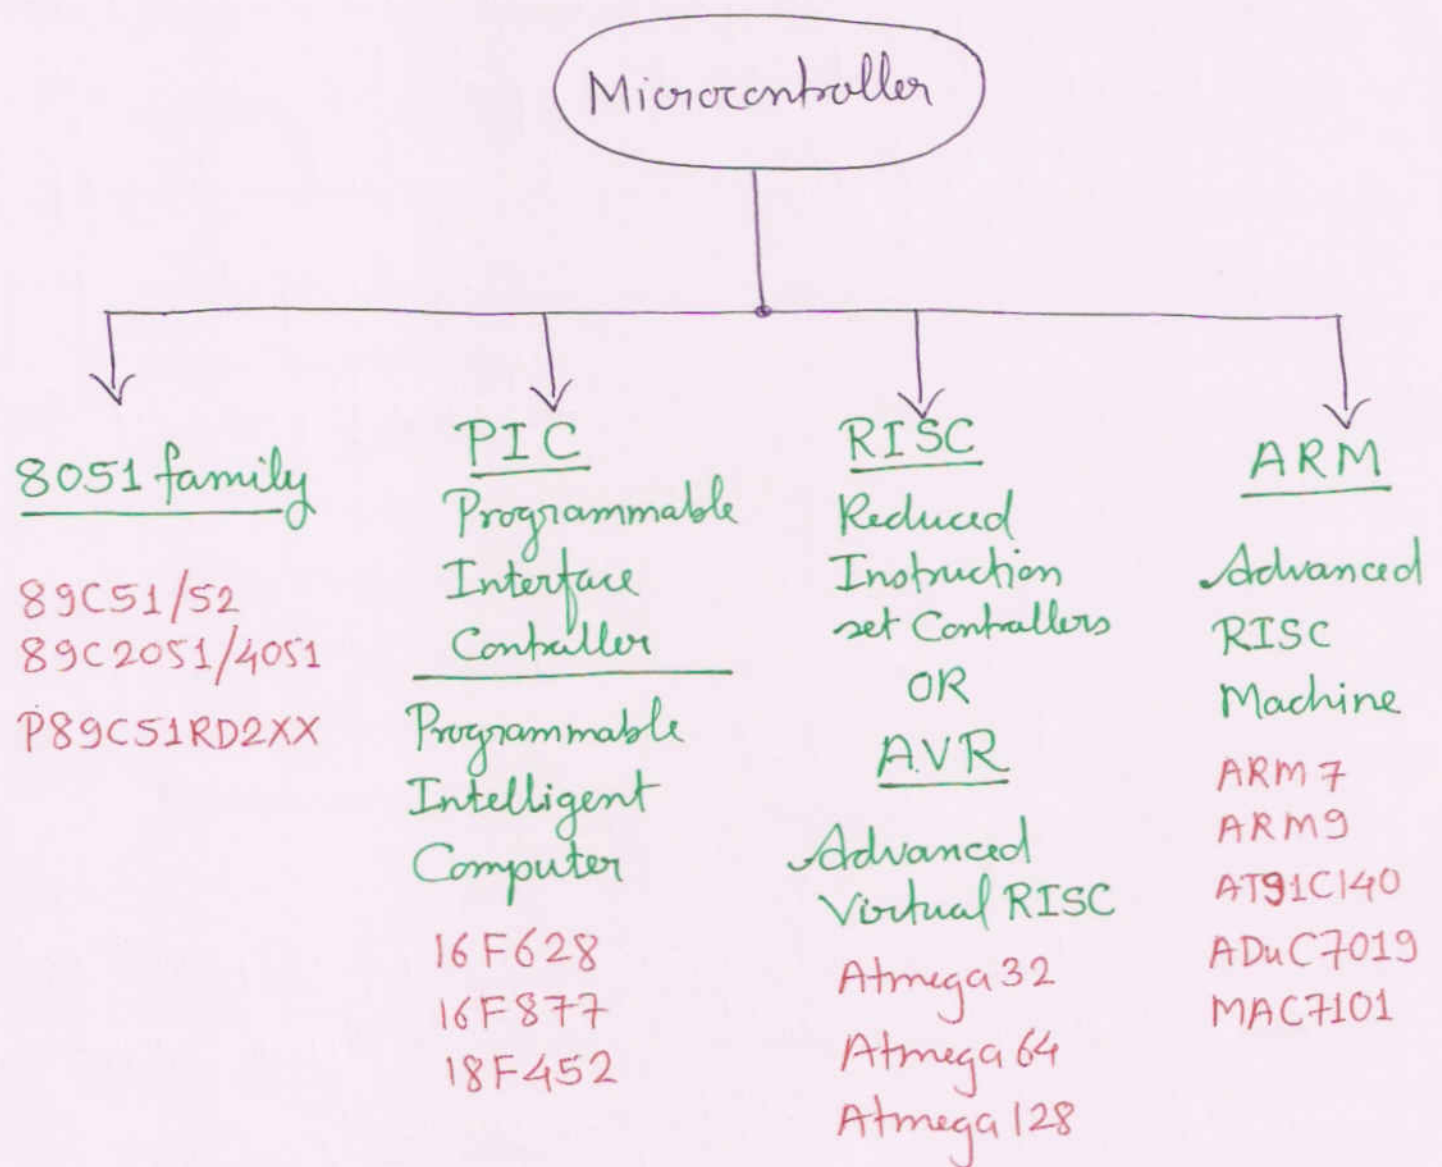 Microcontroller
8051 family
89C51/52
89C2051/4051
P89C51RD2XX
PIC
Programmable
Interface
Controller
Programmable
Intelligent
Computer
16F628
16F877
18F452
RISC
Reduced
Instruction
set Controllers
OR
AVR
Advanced
Virtual RISC
Atmega 32
Atmega 64
Atmega 128
ARM
Advanced
RISC
Machine
ARM 7
ARM9
AT91C140
ADuC7019
MAC7101